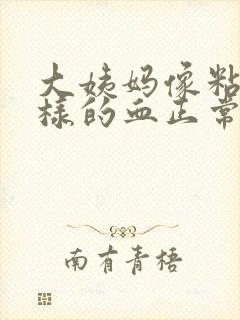 大姨妈像粘
样的血正常
南有青梧